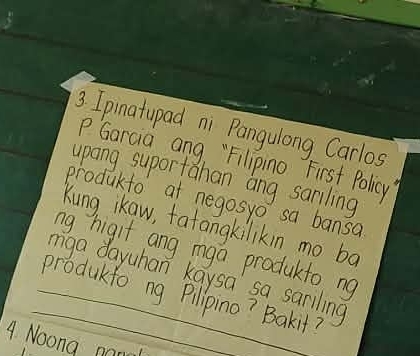 3. Ipinatupad ni Pangulong Carlos
P. Garcia ang "Filipino First Policy"
upang suportahan ang sariling
produkto at negosyo sa bansa.
Kung ikaw, tatangkilikin mo ba
ng higit ang mga produkto ng
mga dayuhan kaysa sa sariling
produkto ng Pilipino? Bakit?
4. Noong